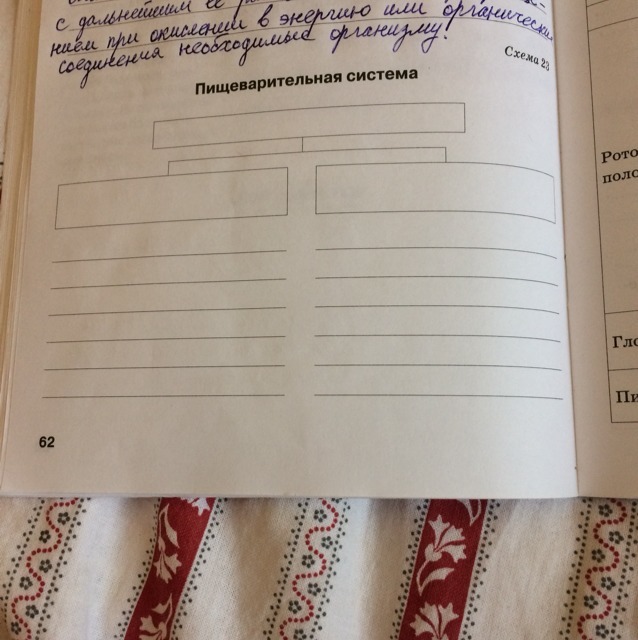 с дальнейшим её
нием при окислении в энергию или органически
соединения необходимые организму!
Схема 23
Пищеварительная система
62
Рото
поло
Гло
Пи